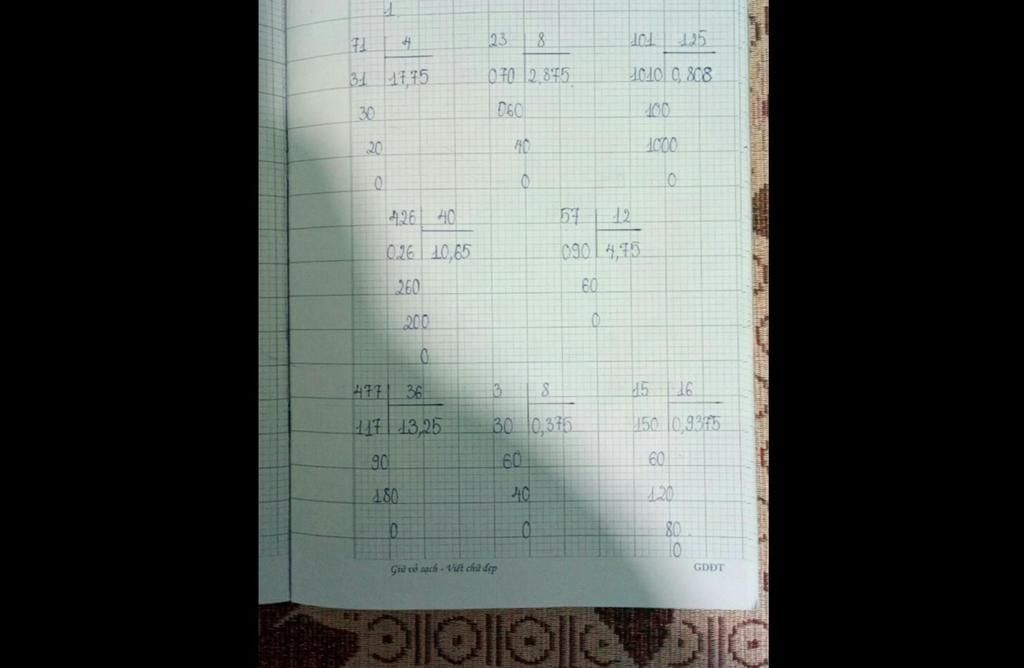 1
71 4 23 8 101 125
31 17,75 070 2,875 1010 0,808
30 060 100
20 40 1000
0 0 0
426 40 57 12
026 10,65 090 4,75
260 60
200 0
0
477 36 3 8 15 16
117 13,25 30 0,375 150 0,9375
90 60 60
180 40 120
0 0 80
0
Giữ vở sạch - Viết chữ đẹp GDĐT